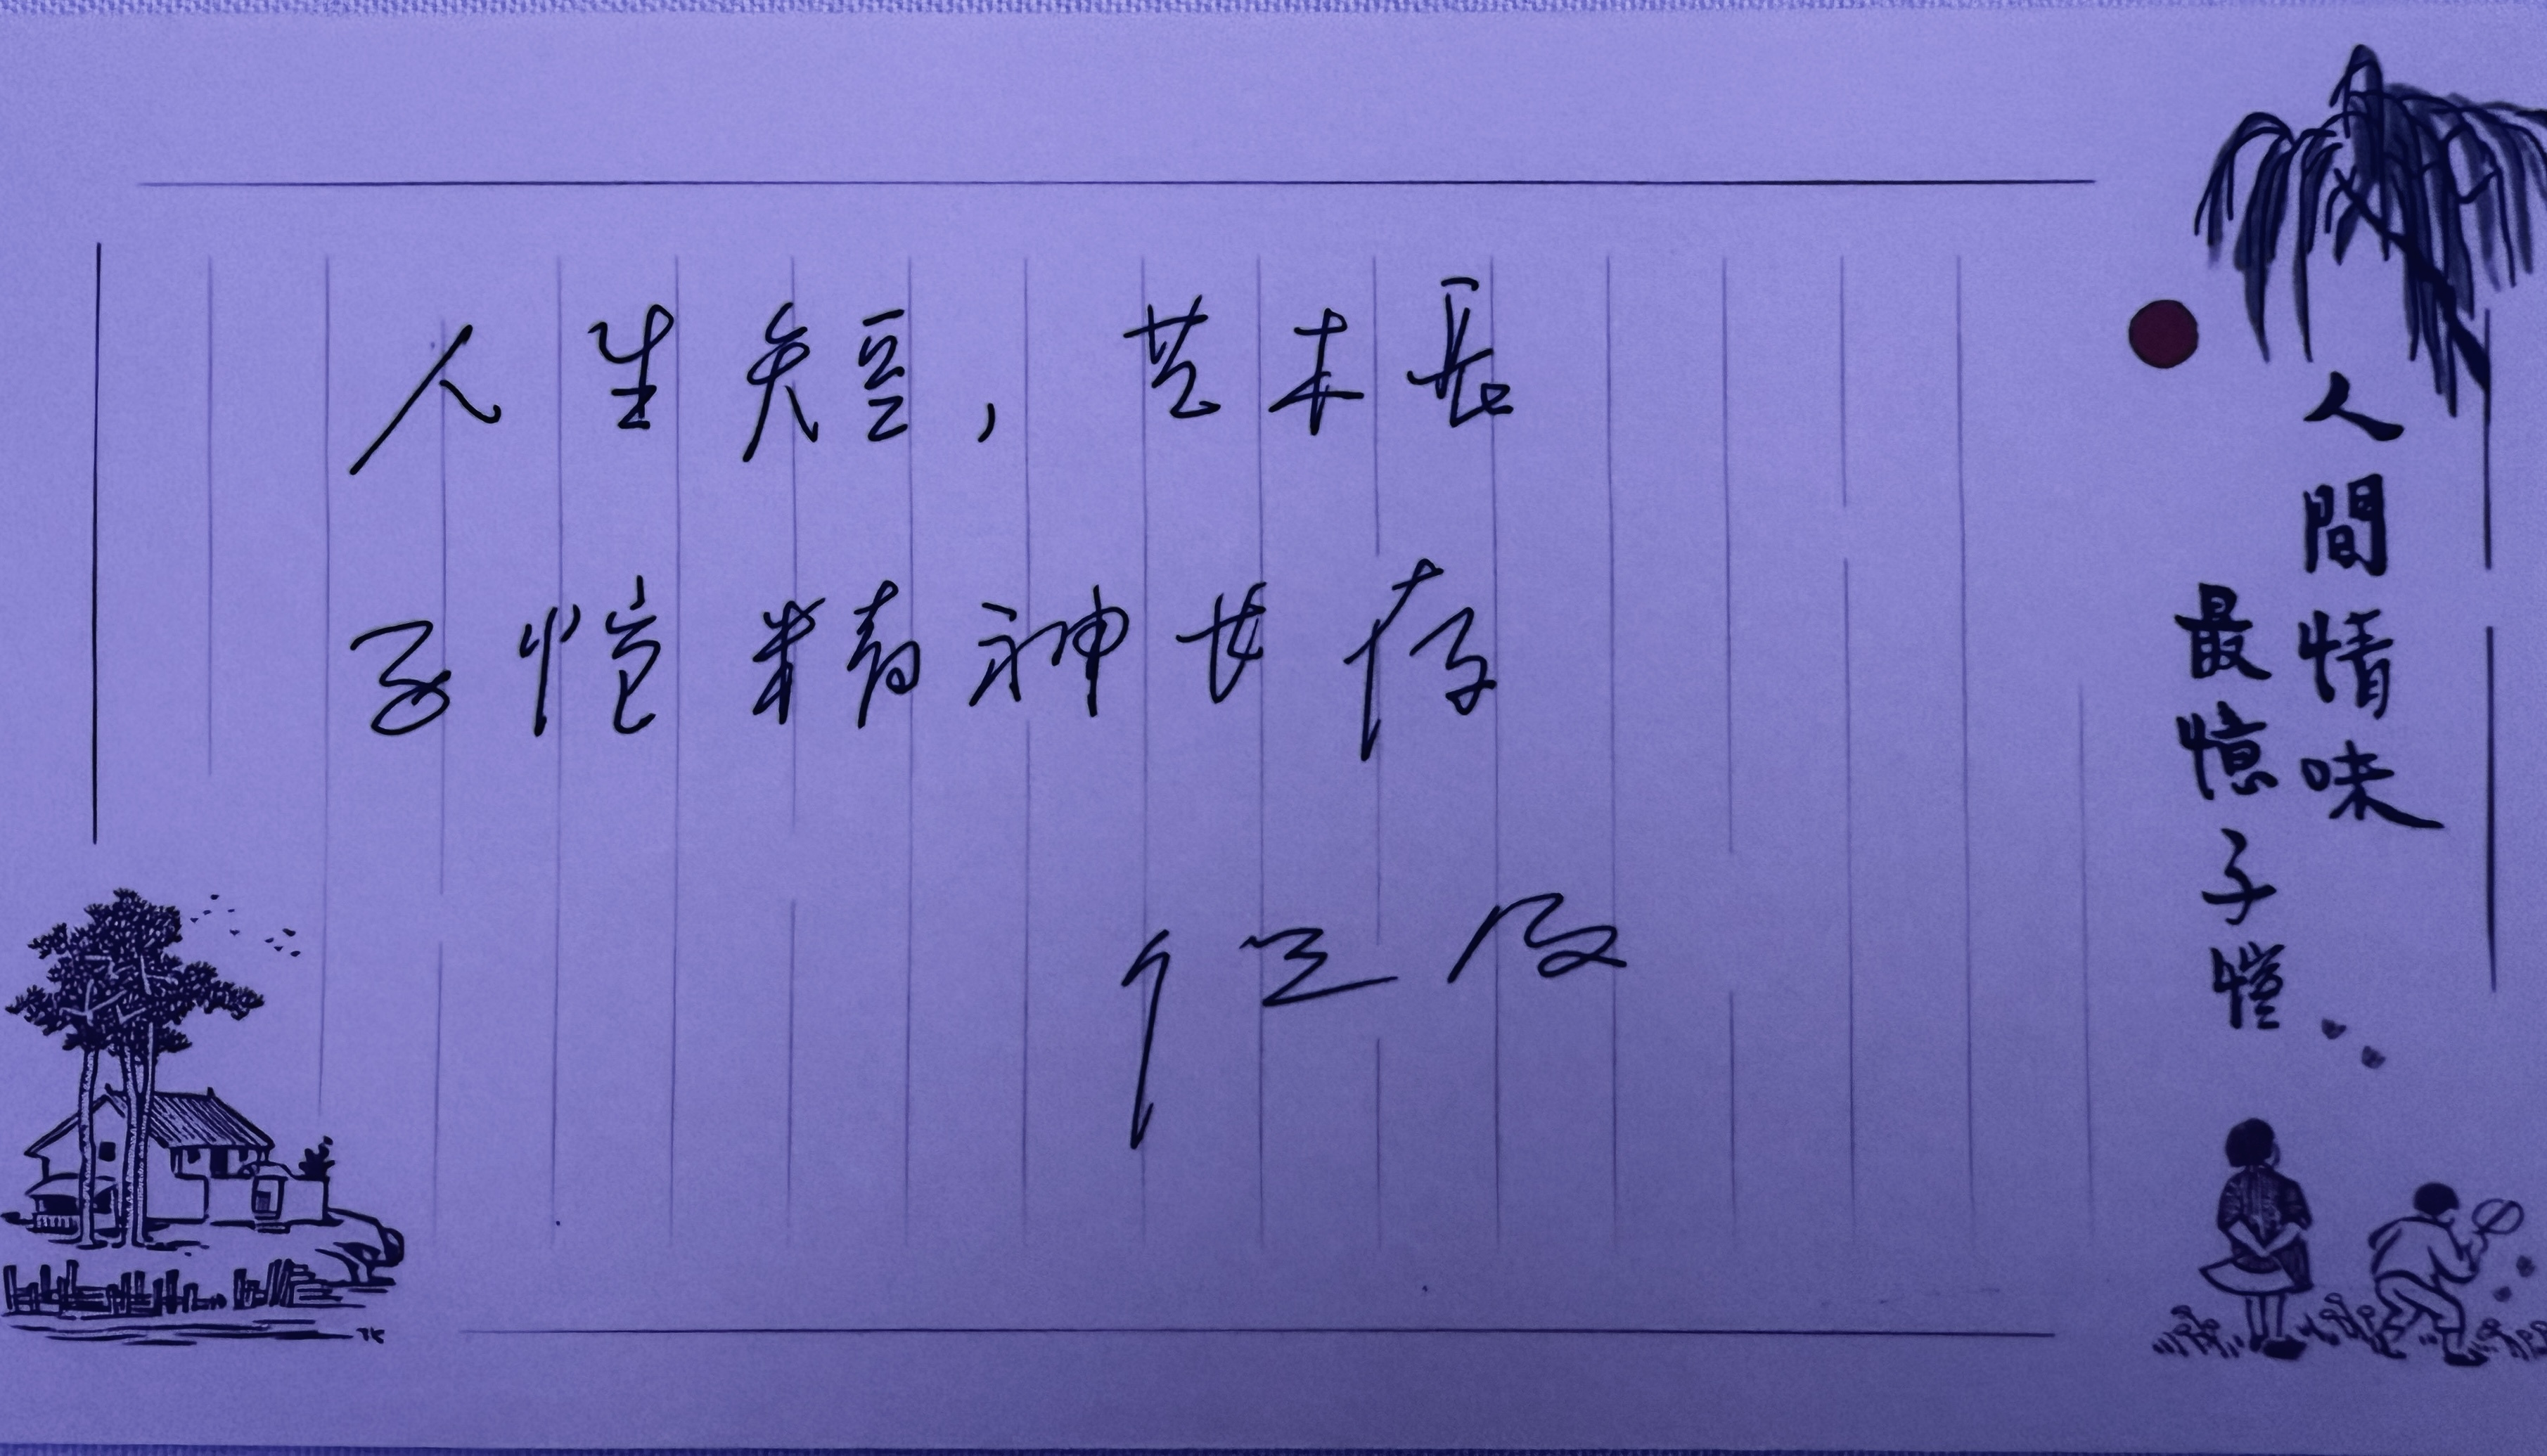 人間情味
最憶子愷
人生短，艺术長
子恺精神长存
TK